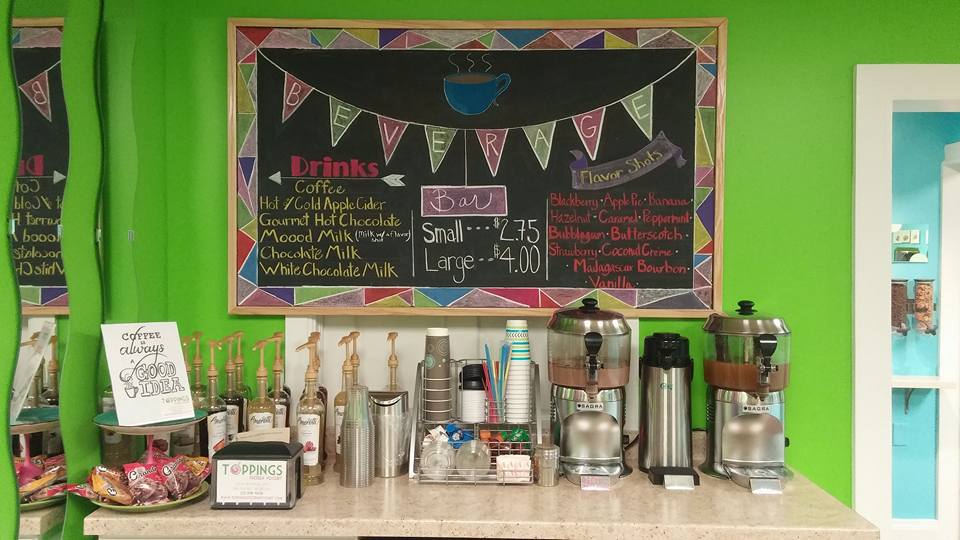 BEVERAGE
Bar
Drinks
Coffee
Hot & Cold Apple Cider
Gourmet Hot Chocolate
Moood Milk (milk w/ a flavor shot)
Chocolate Milk
White Chocolate Milk
Small --- $2.75
Large -- $4.00
Flavor Shots
Blackberry · Apple Pie · Banana
Hazelnut · Caramel · Peppermint
Bubblegum · Butterscotch ·
Strawberry · Coconut Creme ·
Madagascar Bourbon
Vanilla
COFFEE
is
always
A
GOOD
IDEA
TOPPINGS
TOPPINGS
FROZEN YOGURT
Amoretti
Amoretti
Amoretti
SAQRA
SAQRA
Grands